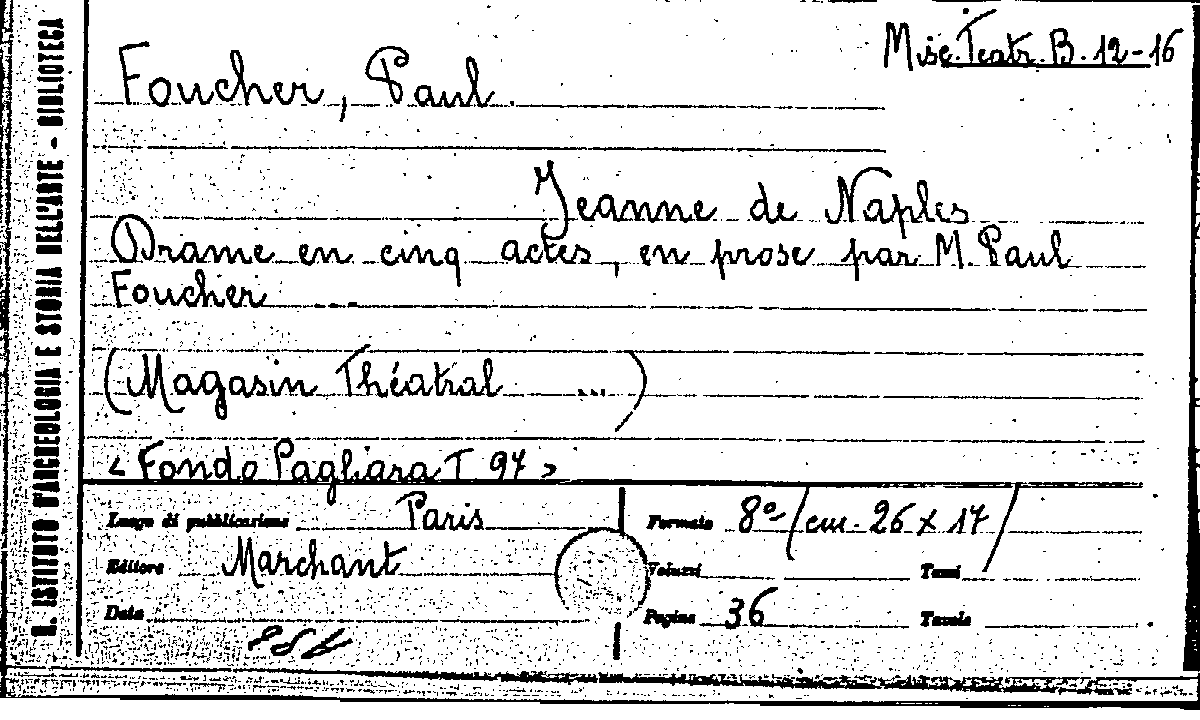 Misc. Teatr. B. 12-16
Foucher, Paul.
Jeanne de Naples
Drame en cinq actes, en prose par M. Paul
Foucher ...
(Magasin Théatral ...)
< Fondo Pagliara T 97 >
Luogo di pubblicazione Paris
Formato 8º/cm. 26 x 17/
Editore Marchant
Volumi Tomi
Data
Pagine 36 Tavole
R. ISTITUTO D'ARCHEOLOGIA E STORIA DELL'ARTE - BIBLIOTECA